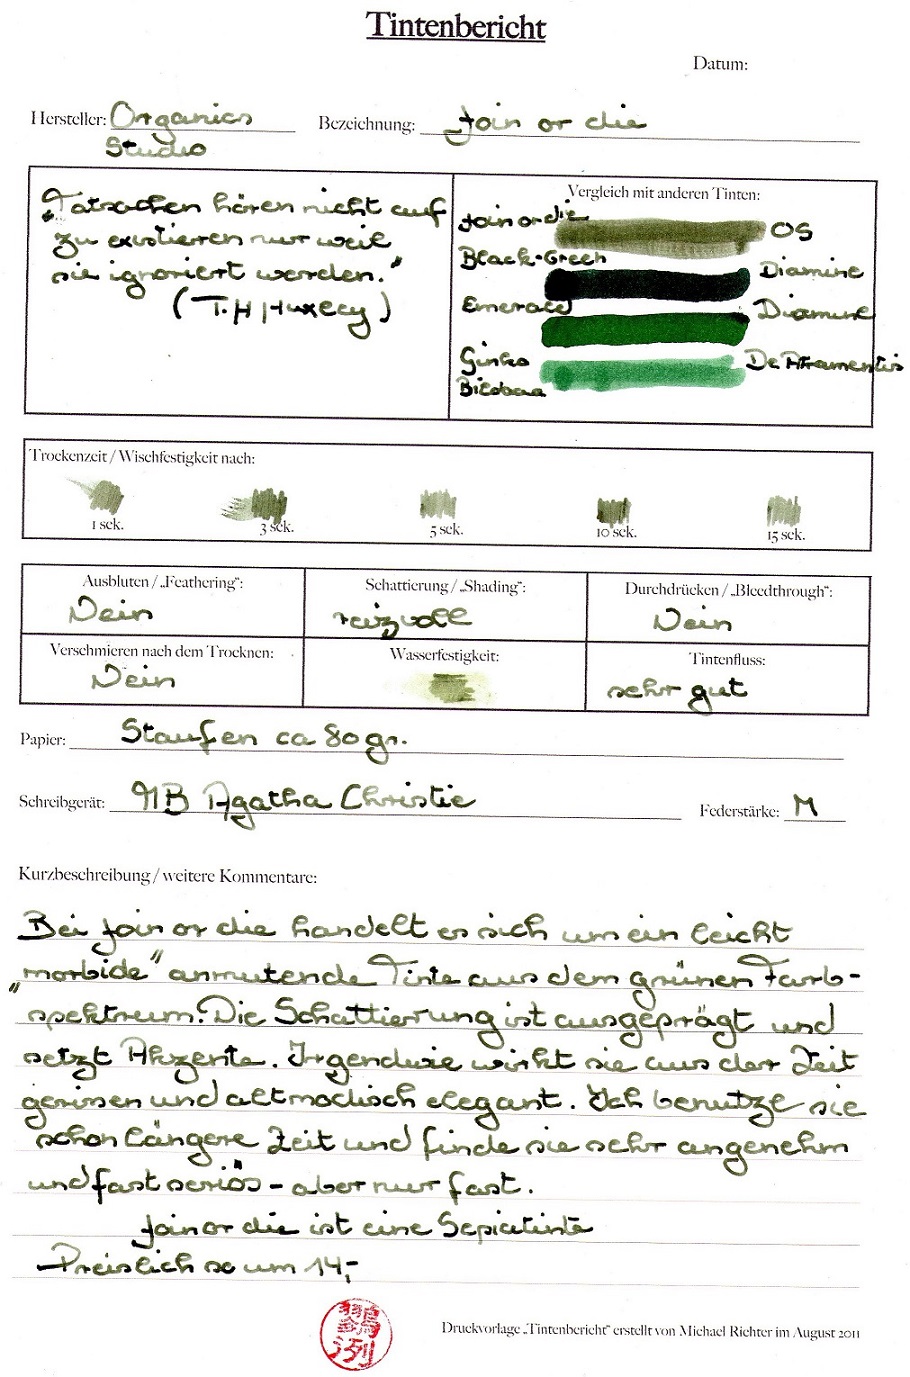 Tintenbericht
Datum:
Hersteller: Organics
Studio
Bezeichnung: Join or die
"Tatsachen hören nicht auf
zu existieren nur weil
sie ignoriert werden."
(T.H Huxley)
Vergleich mit anderen Tinten:
Join or die OS
Black-Green Diamine
Emerald Diamine
Ginko De Atramentis
Biloba
Trockenzeit / Wischfestigkeit nach:
1 sek. 3 sek. 5 sek. 10 sek. 15 sek.
Ausbluten / „Feathering“: Schattierung / „Shading“: Durchdrücken / „Bleedthrough“:
Nein reizvoll Nein
Verschmieren nach dem Trocknen: Wasserfestigkeit: Tintenfluss:
Nein sehr gut
Papier: Staufen ca 80 gr.
Schreibgerät: MB Agatha Christie Federstärke: M
Kurzbeschreibung / weitere Kommentare:
Bei Join or die handelt es sich um ein leicht
„morbide" anmutende Tinte aus dem grünen Farb-
spektrum. Die Schattierung ist ausgeprägt und
setzt Akzente. Irgendwie wirkt sie aus der Zeit
gerissen und altmodisch elegant. Ich benutze sie
schon längere Zeit und finde sie sehr angenehm
und fast seriös - aber nur fast.
Join or die ist eine Sepiatinte
Preislich so um 14,-
Druckvorlage „Tintenbericht“ erstellt von Michael Richter im August 2011